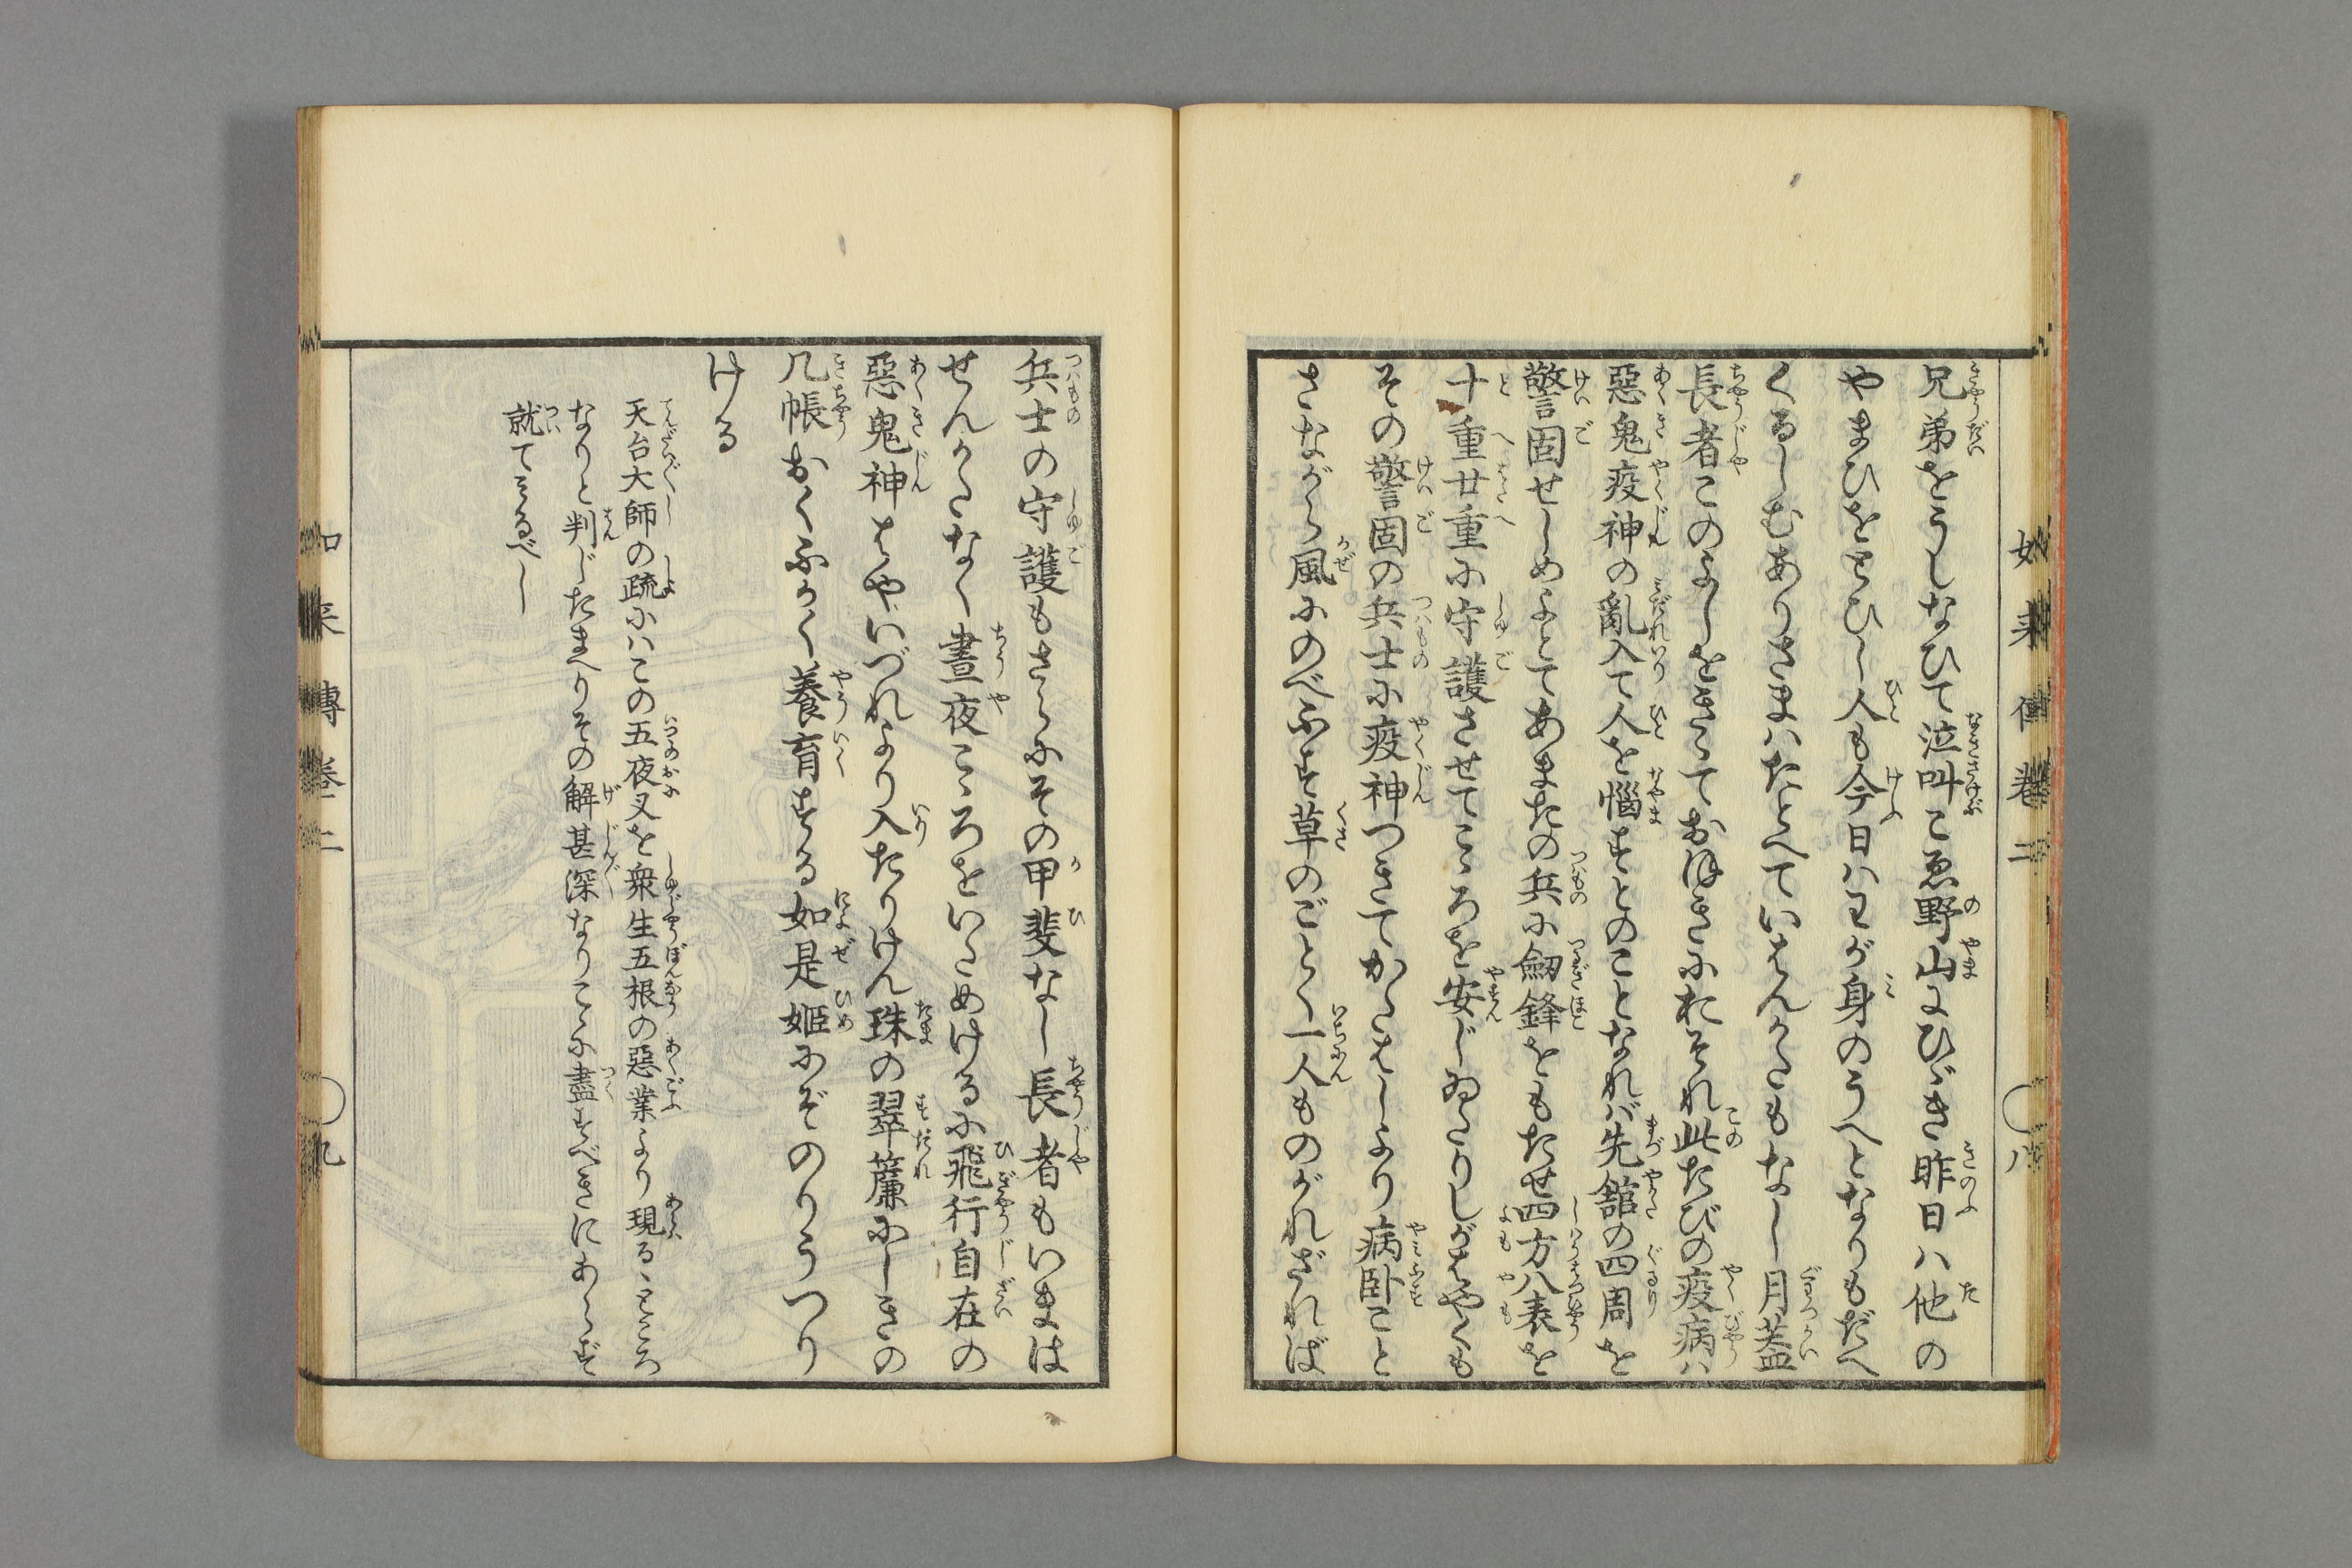 兄弟をうしなひて泣叫こゑ野山にひゞき昨日ハ他の
やまひをとひし人も今日ハわが身のうへとなりもだへ
くるしむありさまハたとへていはんかたもなし月蓋
長者このよしをきゝておほきにおそれ此たびの疫病ハ
惡鬼疫神の亂入て人を惱すとのことなれバ先舘の四周を
警固せしめよとてあまたの兵に劔鋒をもたせ四方八表を
十重廿重に守護させてこゝろを安じゐたりしがはやくも
その警固の兵士に疫神つきてかたはしより病卧こと
さながら風にのべふす草のごとく一人ものがれざれば
如來傳卷二 ○八
兵士の守護もさらにその甲斐なし長者もいまは
せんかたなく晝夜こゝろをいためけるに飛行自在の
惡鬼神はやいづれより入たりけん珠の翠簾にしきの
几帳おくふかく養育する如是姫にぞのりうつり
ける
天台大師の疏にハこの五夜叉を衆生五根の惡業より現るゝところ
なりと判じたまへりその解甚深なりこゝに盡すべきにあらず
就てみるべし
如來傳卷二 ○九